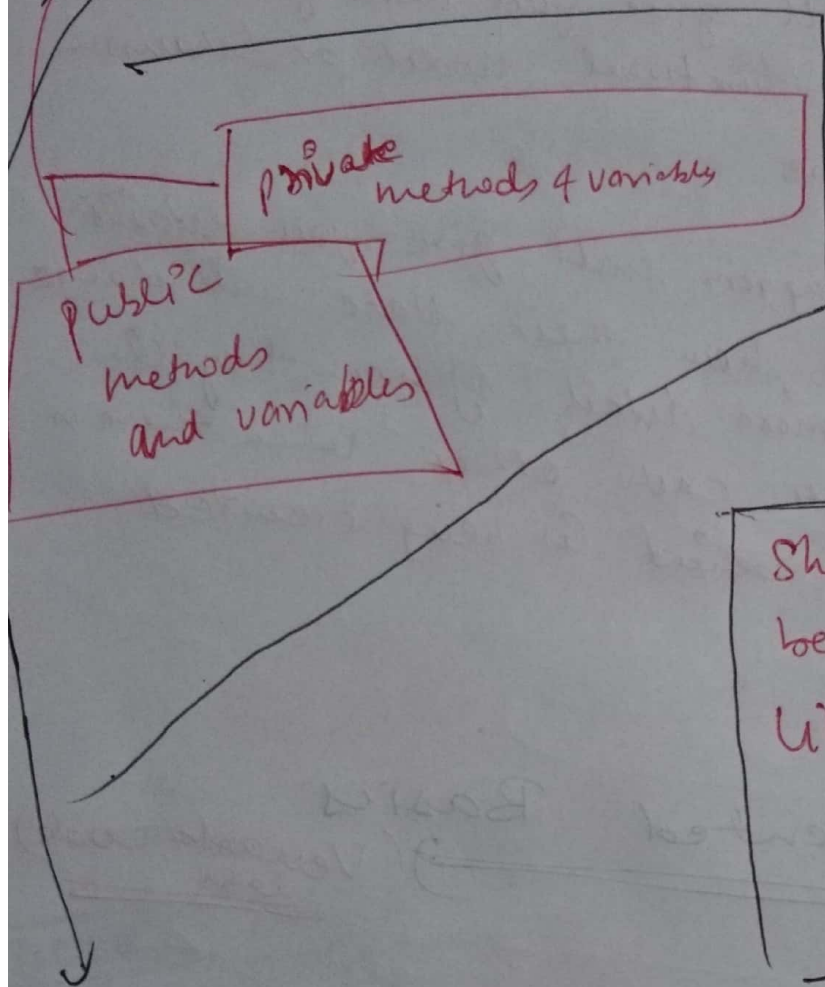 private
methods & variables
public
methods
and variables
Sh
be
Li